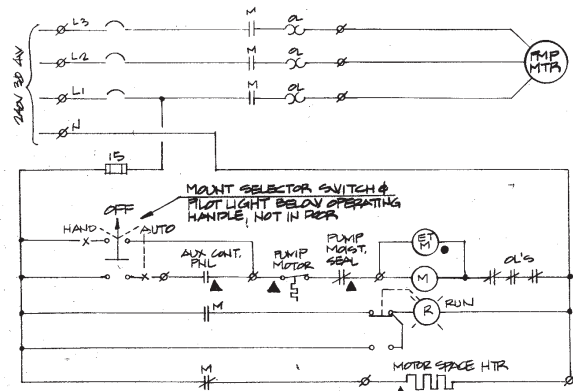 L3
M
OL
L2
M
OL
PMP
MTR
240V 3Ø 4W
L1
M
OL
N
15
MOUNT SELECTOR SWITCH &
PILOT LIGHT BELOW OPERATING
HANDLE, NOT IN DOOR
OFF
HAND
AUTO
AUX CONT.
PNL
PUMP
MOTOR
PUMP
MOIST.
SEAL
ET
M
M
OL'S
M
R
RUN
M
MOTOR SPACE HTR